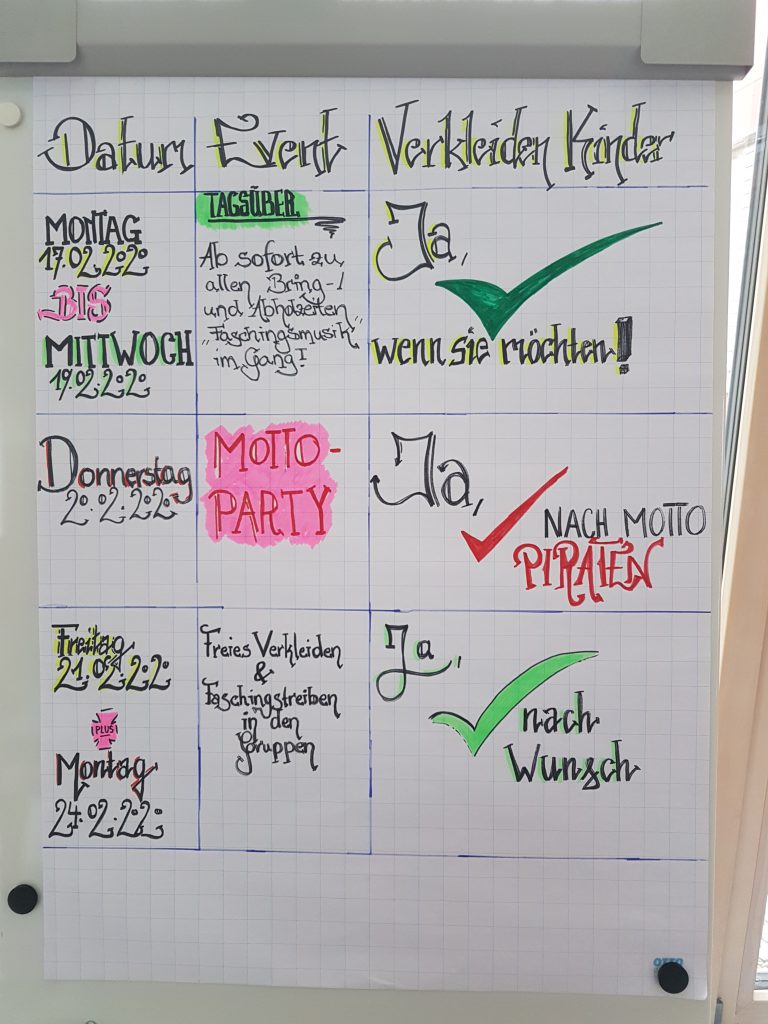 Datum Event Verkleiden Kinder
MONTAG
17.02.2020
BIS
MITTWOCH
19.02.2020
TAGSÜBER
Ab sofort zu
allen Bring-/
und Abholzeiten
"Faschingsmusik"
im Gang!
Ja,
wenn sie möchten!
Donnerstag
20.02.2020
MOTTO-
PARTY
Ja,
NACH MOTTO
PIRATEN
Freitag
21.02.2020
PLUS
Montag
24.02.2020
Freies Verkleiden
&
Faschingstreiben
in den
Gruppen
Ja,
nach
Wunsch
OTTO